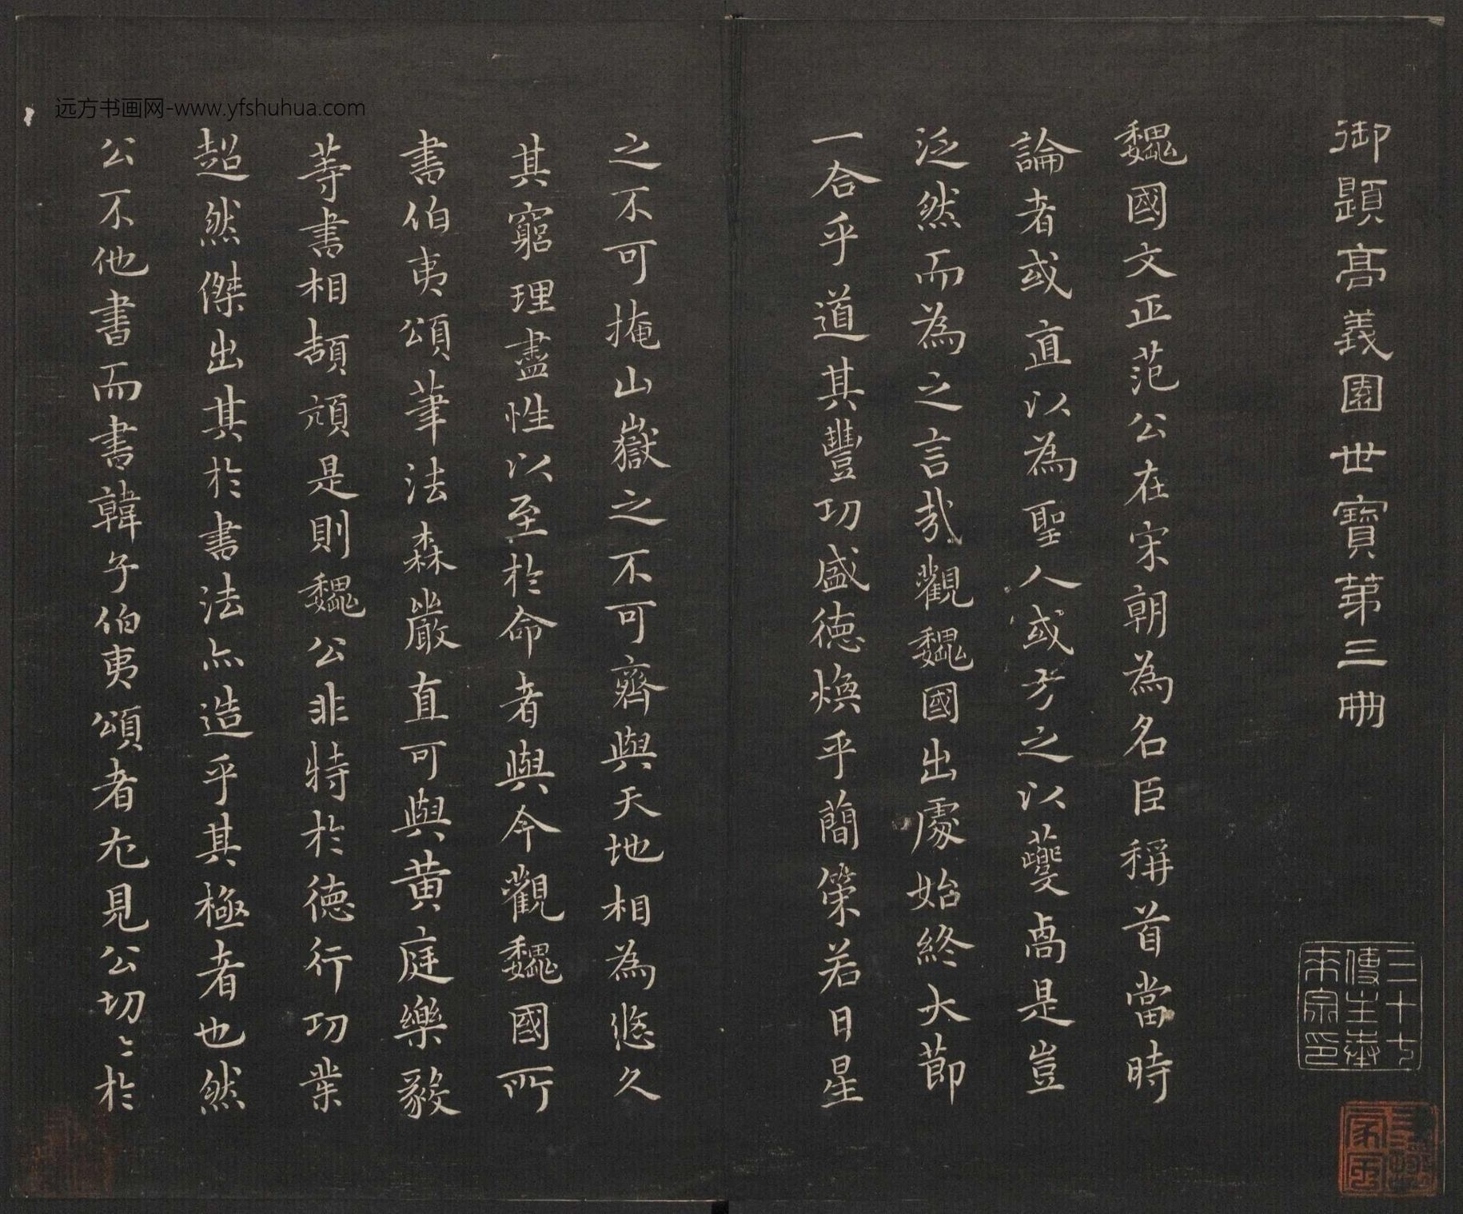 御題高義園世寶第三冊
魏國文正范公在宋朝為名臣稱首當時
論者或直以為聖人或方之以夔卨是豈
泛然而為之言哉觀魏國出處始終大節
一合乎道其豐功盛德煥乎簡策若日星
之不可掩山嶽之不可齊與天地相為悠久
其窮理盡性以至於命者與今觀魏國所
書伯夷頌筆法森嚴直可與黃庭樂毅
等書相頡頏是則魏公非特於德行功業
超然傑出其於書法亦造乎其極者也然
公不他書而書韓子伯夷頌者尤見公切〻於
三十七
傳主奉
宋宗印
远方书画网-www.yfshuhua.com